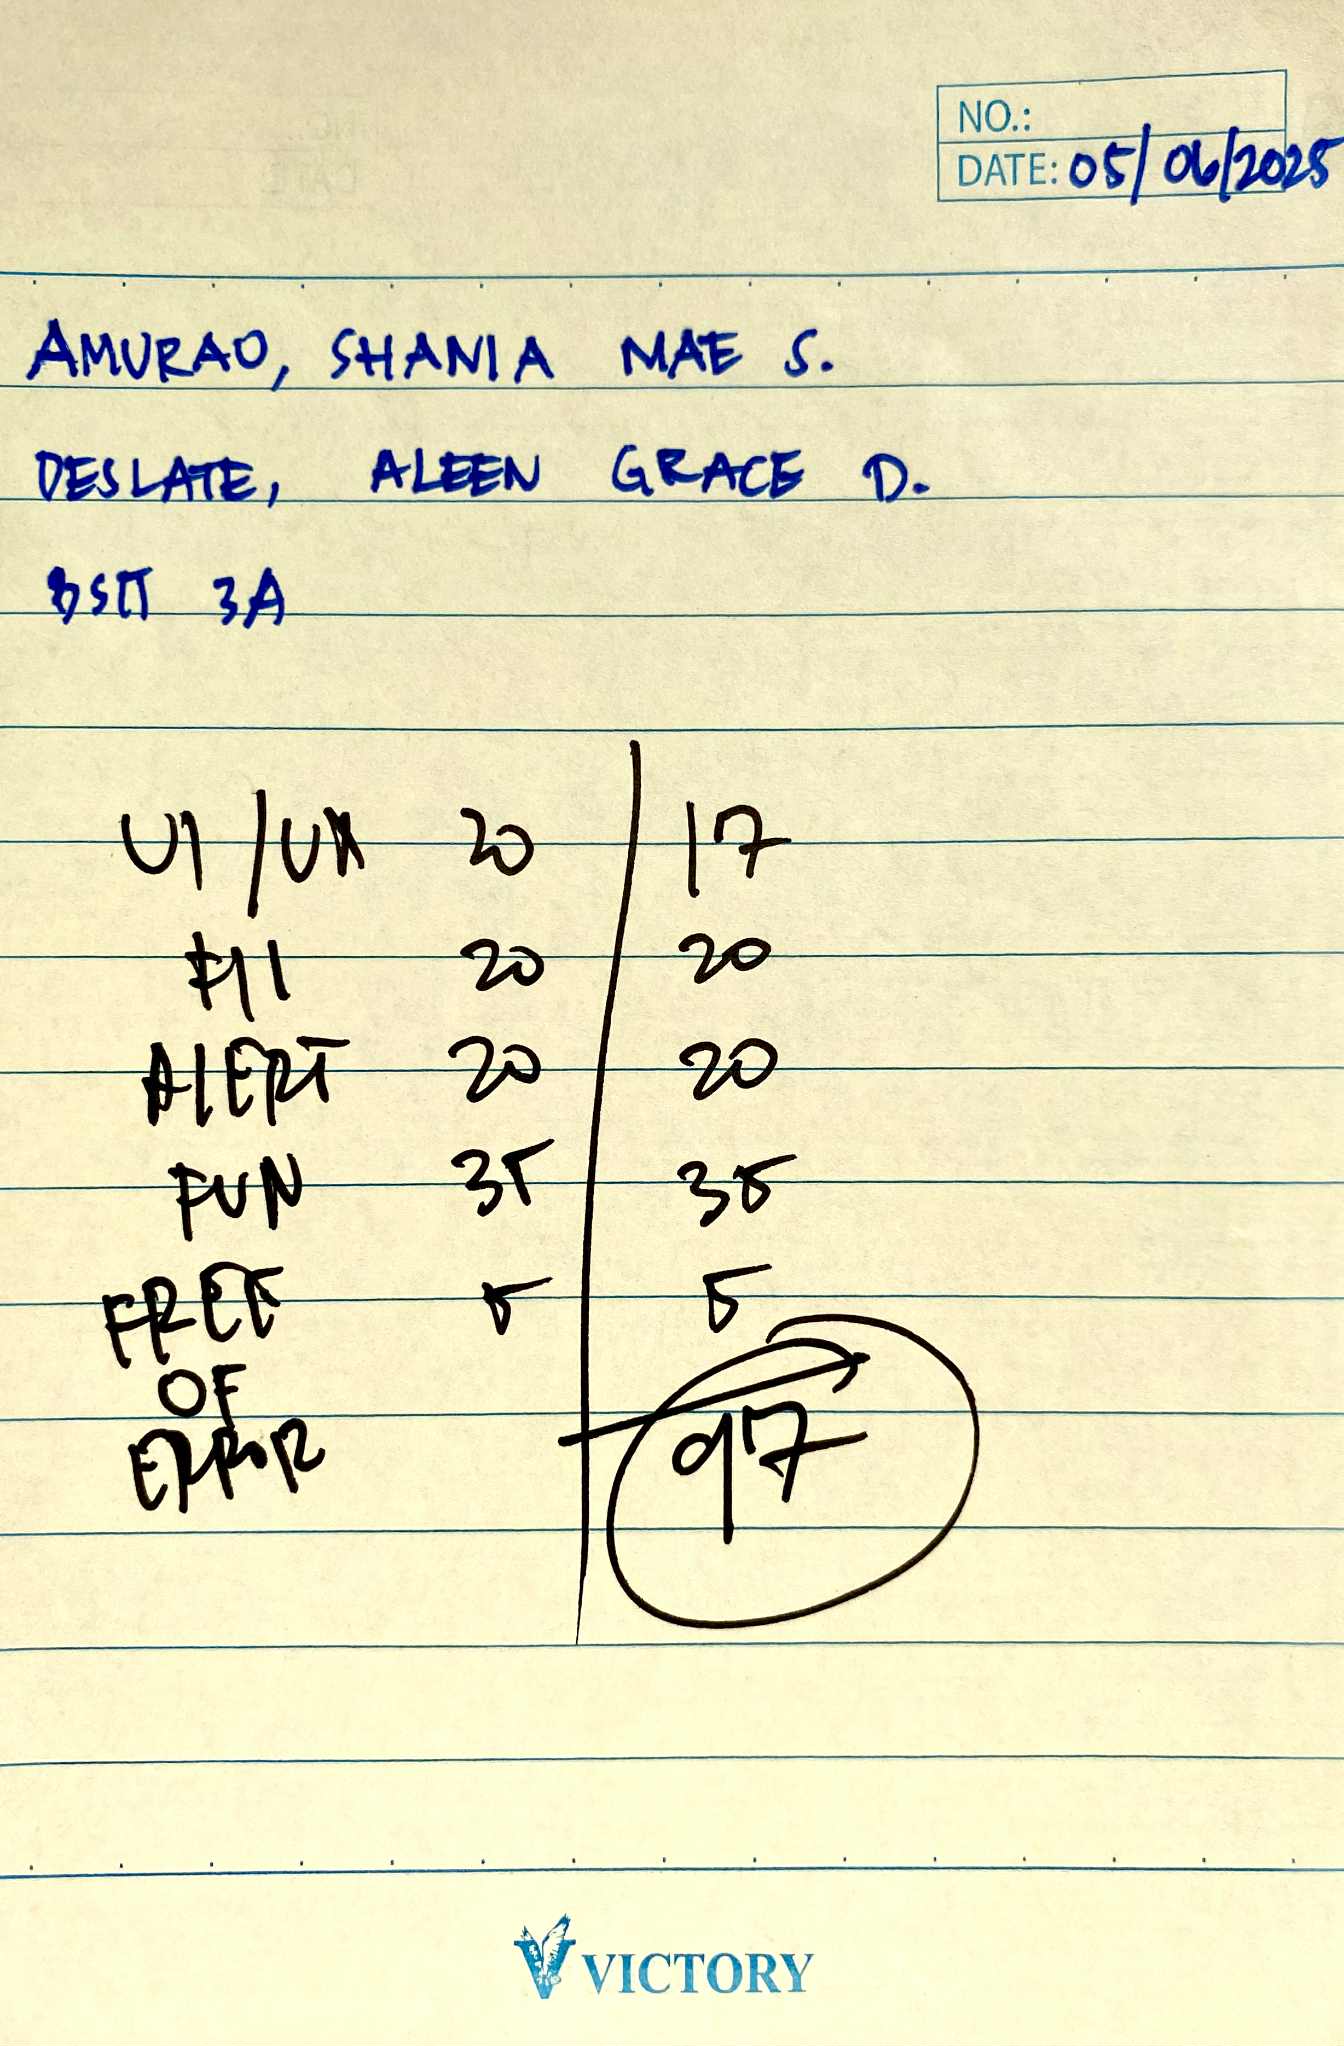 NO.:
DATE: 05/06/2025
AMURAO, SHANIA MAE S.
DESLATE, ALEEN GRACE D.
BSIT 3A
UI/UX 20 17
20 20
ALERT 20 20
FUN 35 35
FREE 5 5
OF
ERROR 97
VICTORY